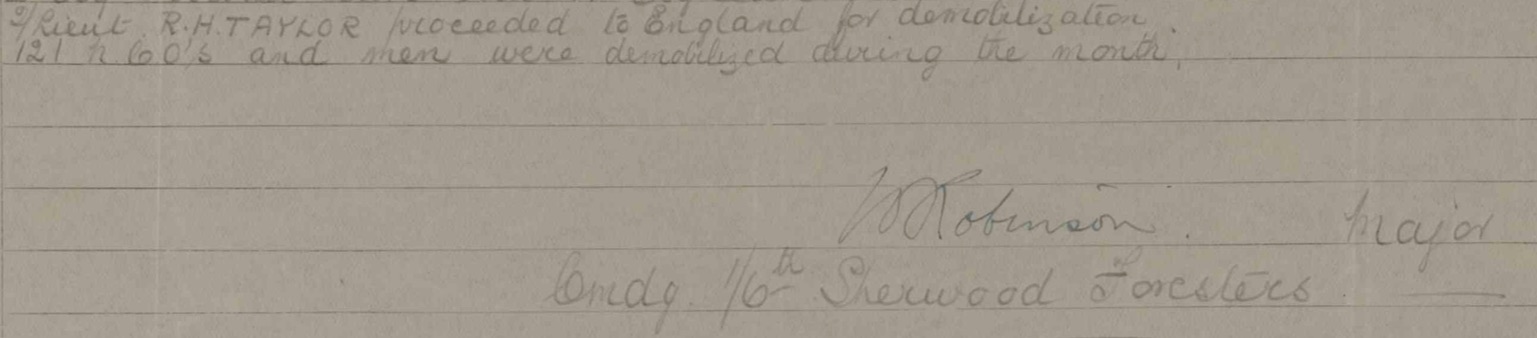 2/Lieut. R.H. TAYLOR proceeded to England for demobilization.
121 N.CO's and men were demobilized during the month.
Robinson. Major
Cmdg. 1/6th Sherwood Foresters.